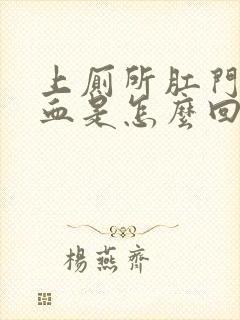 上廁所肛門
血是怎麼回
楊燕齊